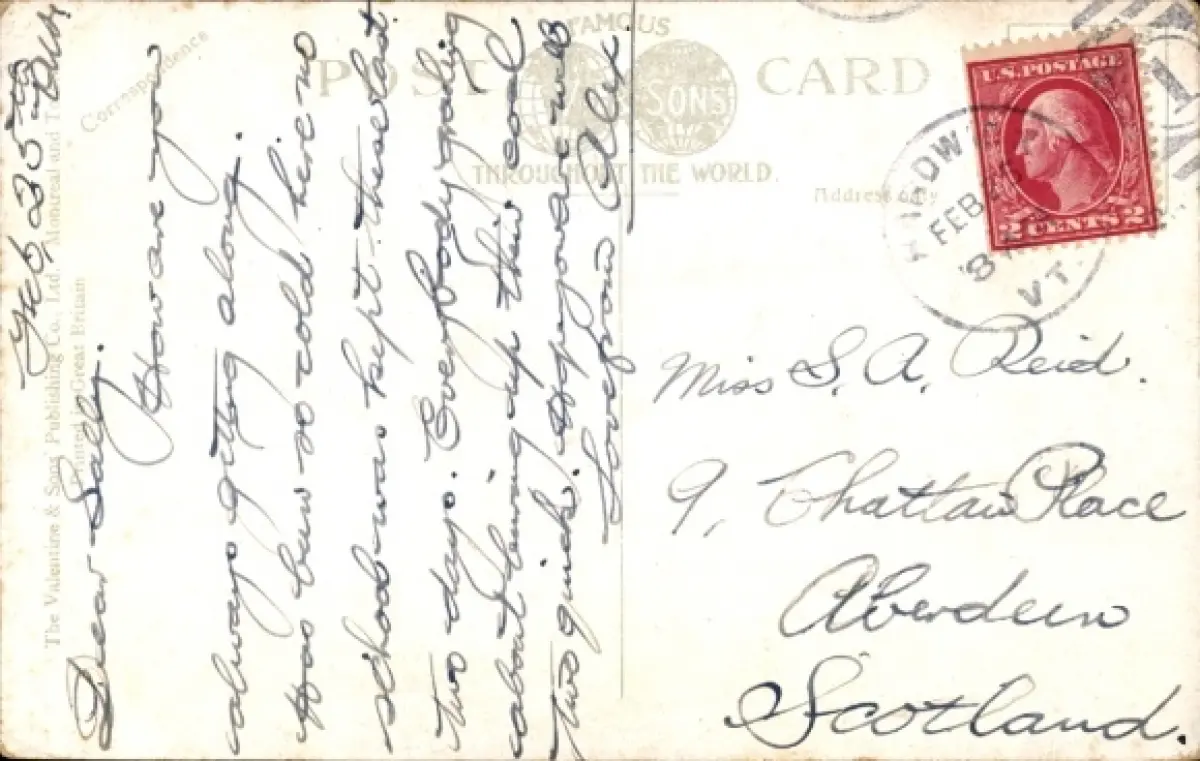 FAMOUS
POST CARD
SONS
THROUGHOUT THE WORLD.
Correspondence
Address only
The Valentine & Sons' Publishing Co., Ltd. Montreal and
Printed in Great Britain
U.S. POSTAGE
2 CENTS 2
FEB
8
VT.
Feb 25th
Dear Sally.
How are you
always getting along.
Has been so cold here no
school was kept these last
two days. Everybody
about up their coal
two quick. Hope you are well
Love from Alex.
Miss S. A. Reid.
9, Chattan Place
Aberdeen
Scotland.